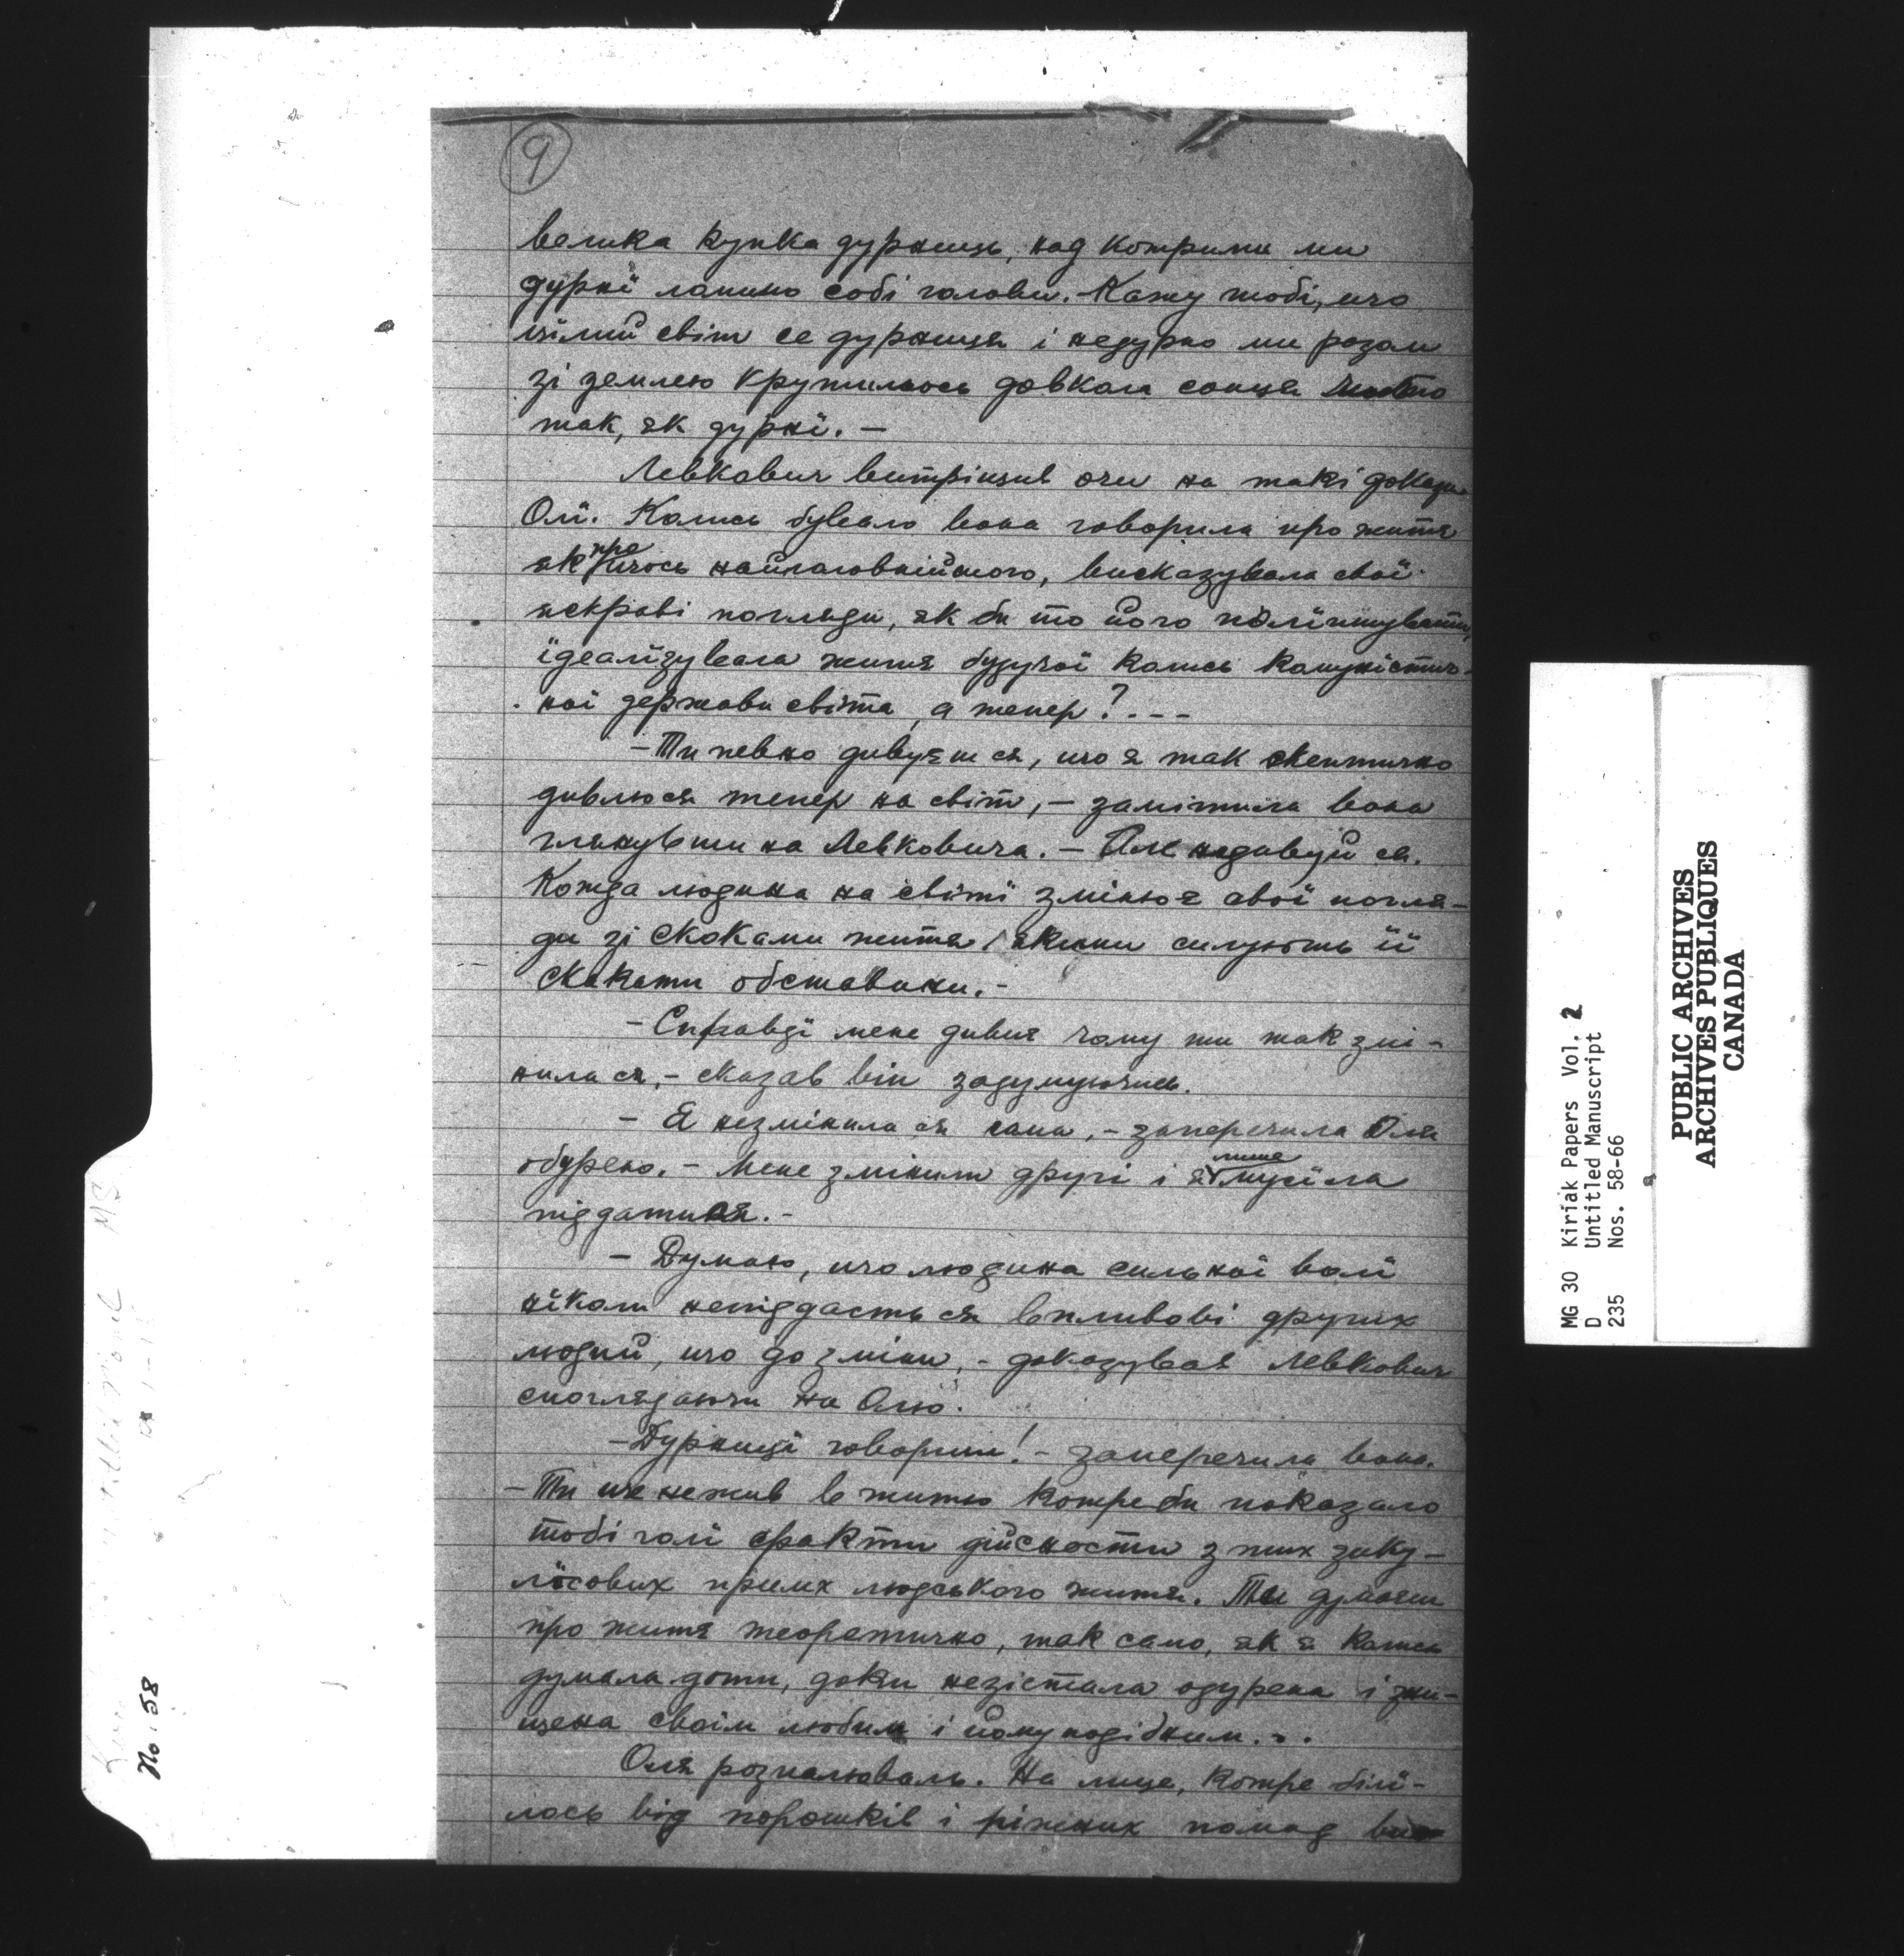 9
велика купка дурниць, над котрими ми
дурнї ламимо собі голови. - Кажу тобі, що
цїлий світ се дурниця і недурно ми разом
зі землею кружимось довкола сонця
так, як дурнї. -
Левкович витріщив очи на такі докази
Олї. Колись бувало вона говорила про життя
як про щось найголовнїйшого, висказувала свої
яскраві погляди, як би то його полїпшувати,
їдеалїзувала життя будучої колись комунїстич-
ної держави світа, а тепер? - - -
- Ти певно дивуєш ся, що я так скептично
дивлюся тепер на світ, - замітила вона
глянувши на Левковича. - Але недивуй ся.
Кожда людина на світї змінює свої погля-
ди зі скоками життя якими силують її
скакати обставини. -
- Справдї мене дивує чому ти так змі-
нила ся, - сказав він задумуючись.
- Я незмінила ся сама, - заперечила Оля
обурено. - Мене змінили другі і я лише мусїла
піддатися. -
- Думаю, що людина сильної волї
нїколи непіддасть ся впливові других
людий, що до зміни, - доказував Левкович
споглядаючи на Олю.
- Дурницї говориш! - заперечила вона.
- Ти ще нежив в житю котре би показало
тобі голї факти дїйсности з тих заку-
лїсових примх людського життя. Ти думаєш
про життя теоретично, так само, як я колись
думала доти, доки незістала одурена і зни-
щена своїм любим і йому подібним. . .
Оля розпалювалась. На лице, котре білї-
лось від порошків і ріжних помад
No. 58
MG 30 Kiriak Papers Vol. 2
D Untitled Manuscript
235 Nos. 58-66
PUBLIC ARCHIVES
ARCHIVES PUBLIQUES
CANADA